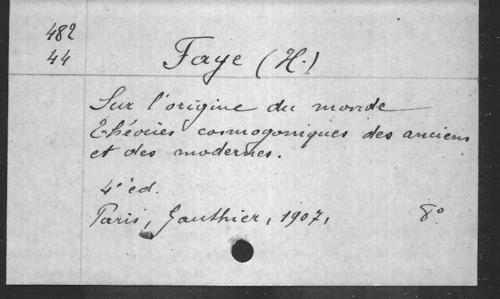 482
44
Faye (H.)
Sur l'origine du monde
Théories cosmogoniques des anciens
et des modernes.
4e éd.
Paris, Gauthier, 1907,
8o